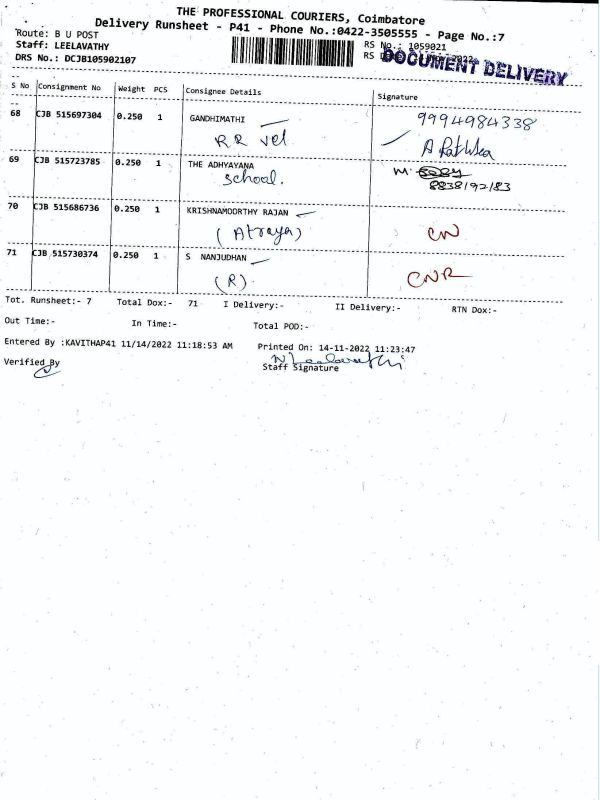 THE PROFESSIONAL COURIERS, Coimbatore
Delivery Runsheet - P41 - Phone No.:0422-3505555 - Page No.:7
Route: B U POST
Staff: LEELAVATHY
DRS No.: DCJB105902107
RS No.: 1059021
DOCUMENT DELIVERY
S No Consignment No Weight PCS Consignee Details Signature
68 CJB 515697304 0.250 1 GANDHIMATHI 9994984338
R R vel
69 CJB 515723785 0.250 1 THE ADHYAYANA
school. 8838192183
70 CJB 515686736 0.250 1 KRISHNAMOORTHY RAJAN
(Atraya) CN
71 CJB 515730374 0.250 1 S NANJUDHAN
(R) CNR
Tot. Runsheet:- 7 Total Dox:- 71 I Delivery:- II Delivery:- RTN Dox:-
Out Time:- In Time:- Total POD:-
Entered By :KAVITHAP41 11/14/2022 11:18:53 AM Printed On: 14-11-2022 11:23:47
Verified By Staff Signature